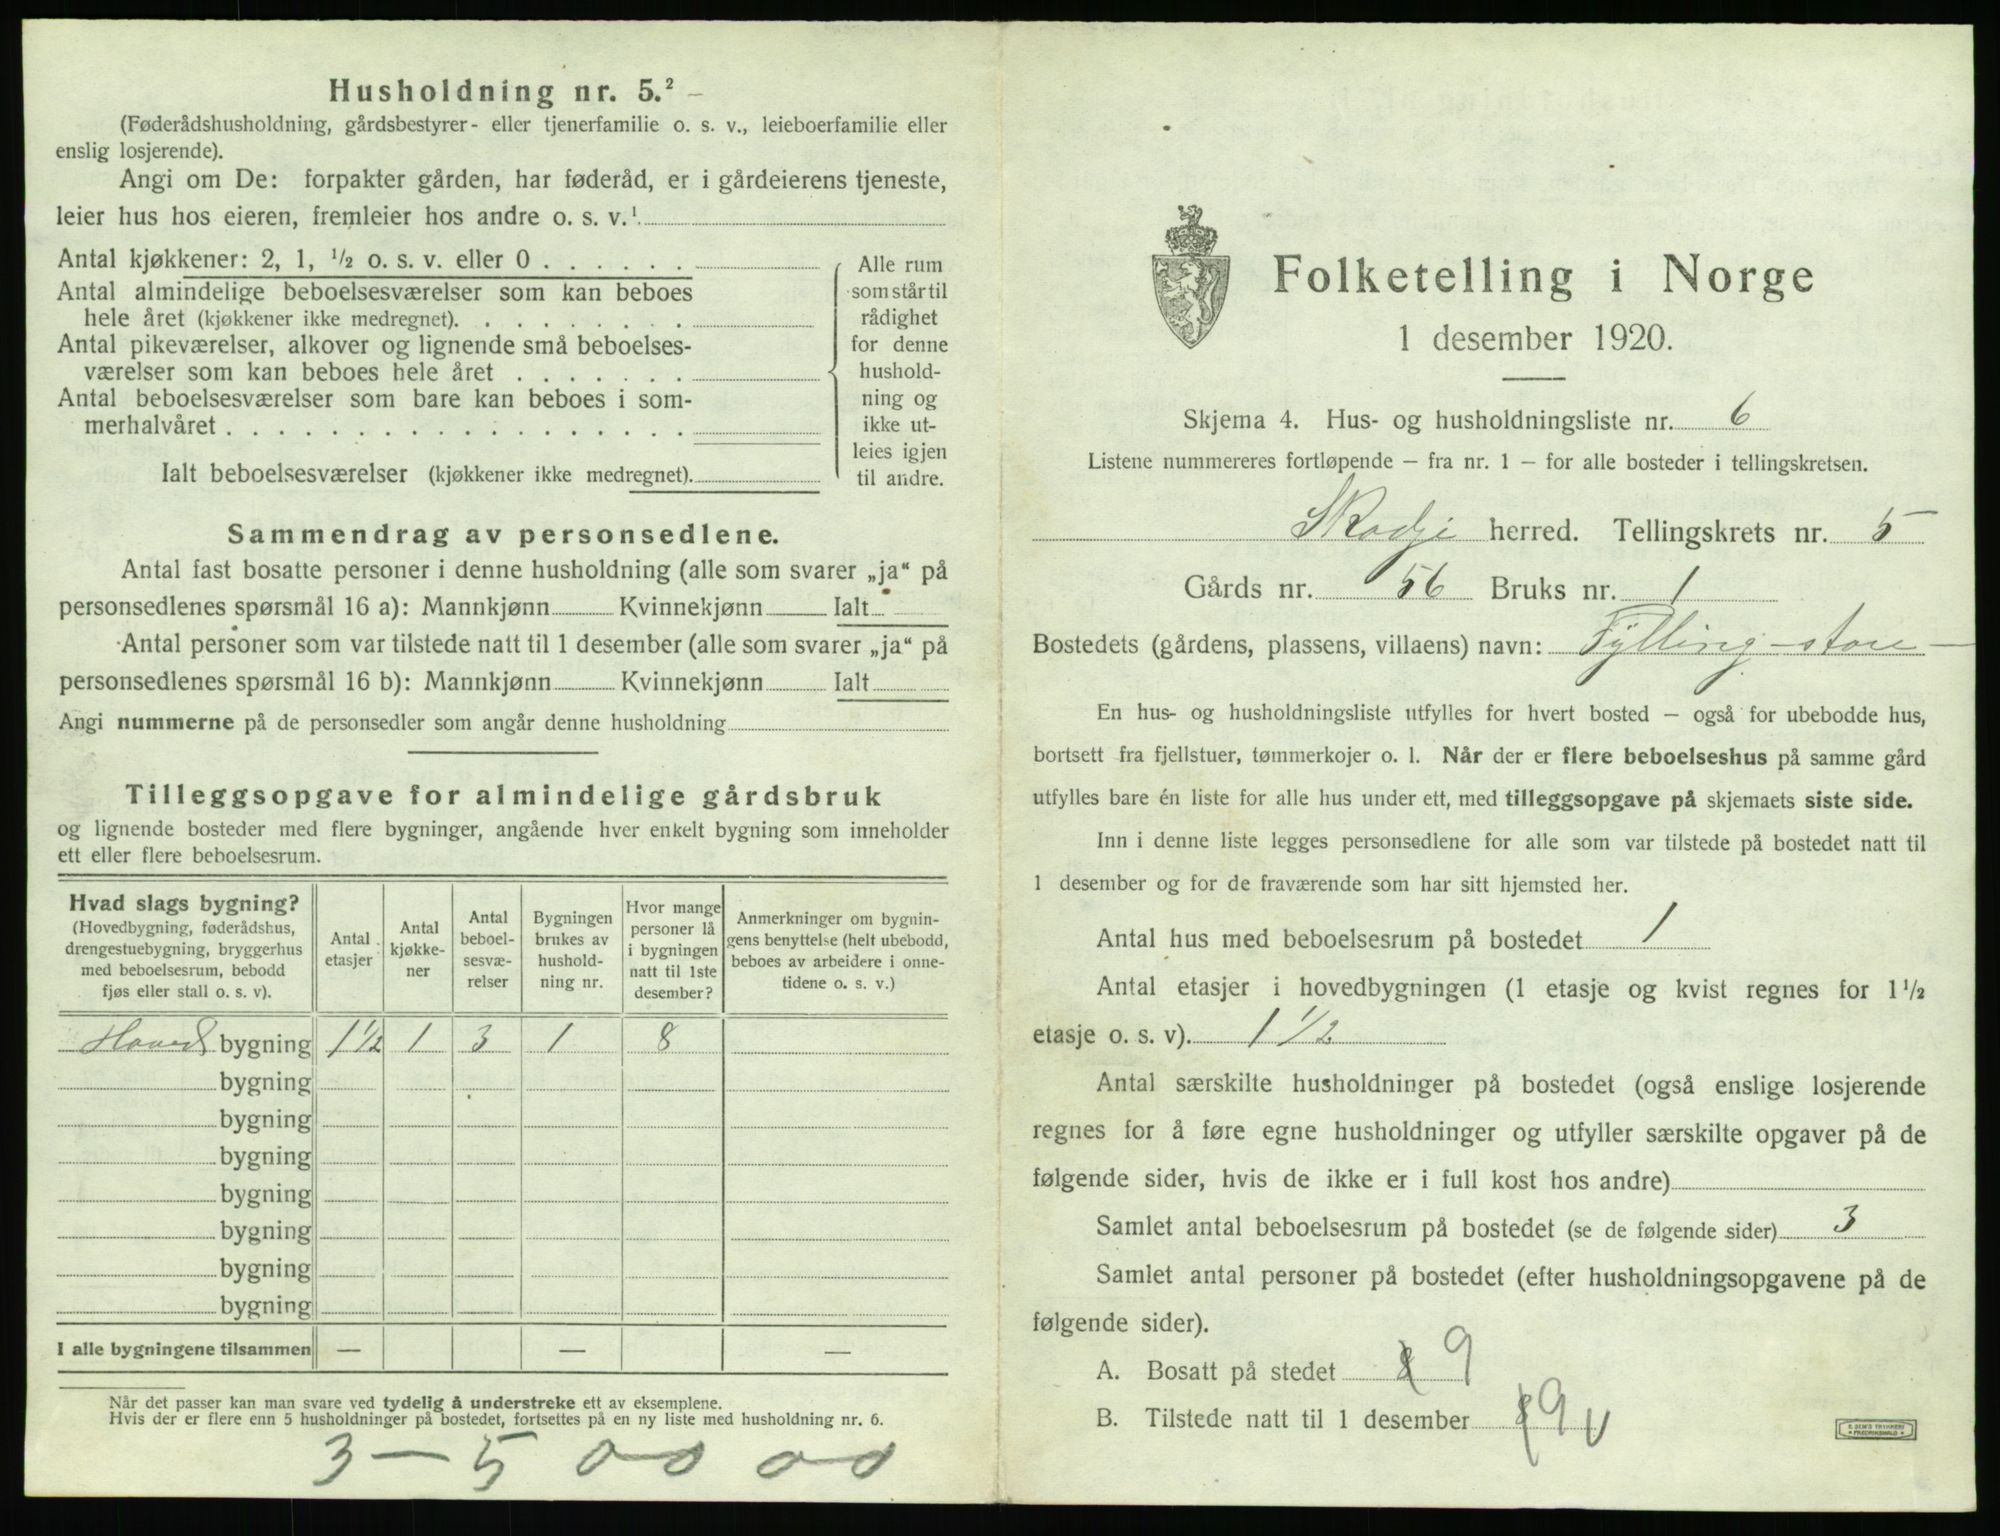 Husholdning nr. 5.²
(Føderådshusholdning, gårdsbestyrer- eller tjenerfamilie o. s. v., leieboerfamilie eller
enslig losjerende).
Angi om De: forpakter gården, har føderåd, er i gårdeierens tjeneste,
leier hus hos eieren, fremleier hos andre o. s. v.¹
Antal kjøkkener: 2, 1, ½ o. s. v. eller 0 . . . . . .
Antal almindelige beboelsesværelser som kan beboes
hele året (kjøkkener ikke medregnet). . . . . . . . .
Antal pikeværelser, alkover og lignende små beboelses-
værelser som kan beboes hele året . . . . . . .
Antal beboelsesværelser som bare kan beboes i som-
merhalvåret . . . . . . . . . . . . . . . . . .
Ialt beboelsesværelser (kjøkkener ikke medregnet).
Alle rum
som står til
rådighet
for denne
hushold-
ning og
ikke ut-
leies igjen
til andre.
Sammendrag av personsedlene.
Antal fast bosatte personer i denne husholdning (alle som svarer „ja“ på
personsedlenes spørsmål 16 a): Mannkjønn Kvinnekjønn Ialt
Antal personer som var tilstede natt til 1 desember (alle som svarer „ja“ på
personsedlenes spørsmål 16 b): Mannkjønn Kvinnekjønn Ialt
Angi nummerne på de personsedler som angår denne husholdning
Tilleggsopgave for almindelige gårdsbruk
og lignende bosteder med flere bygninger, angående hver enkelt bygning som inneholder
ett eller flere beboelsesrum.
Hvad slags bygning?
(Hovedbygning, føderådshus,
drengestuebygning, bryggerhus
med beboelsesrum, bebodd
fjøs eller stall o. s. v).
Antal
etasjer
Antal
kjøkke-
ner
Antal
beboel-
sesvæ-
relser
Bygningen
brukes av
hushold-
ning nr.
Hvor mange
personer lå
i bygningen
natt til 1ste
desember?
Anmerkninger om bygnin-
gens benyttelse (helt ubebodd,
beboes av arbeidere i onne-
tidene o. s. v.)
Hoved bygning 1½ 1 3 1 8
bygning
bygning
bygning
bygning
bygning
bygning
bygning
I alle bygningene tilsammen — — —
Når det passer kan man svare ved tydelig å understreke ett av eksemplene.
Hvis der er flere enn 5 husholdninger på bostedet, fortsettes på en ny liste med husholdning nr. 6.
3 — 5 0-0 0-0
Folketelling i Norge
1 desember 1920.
Skjema 4. Hus- og husholdningsliste nr. 6
Listene nummereres fortløpende – fra nr. 1 – for alle bosteder i tellingskretsen.
Skodje herred. Tellingskrets nr. 5
Gårds nr. 56 Bruks nr. 1
Bostedets (gårdens, plassens, villaens) navn: Fylling-store
En hus- og husholdningsliste utfylles for hvert bosted – også for ubebodde hus,
bortsett fra fjellstuer, tømmerkojer o. l. Når der er flere beboelseshus på samme gård
utfylles bare én liste for alle hus under ett, med tilleggsopgave på skjemaets siste side.
Inn i denne liste legges personsedlene for alle som var tilstede på bostedet natt til
1 desember og for de fraværende som har sitt hjemsted her.
Antal hus med beboelsesrum på bostedet 1
Antal etasjer i hovedbygningen (1 etasje og kvist regnes for 1½
etasje o. s. v). 1½
Antal særskilte husholdninger på bostedet (også enslige losjerende
regnes for å føre egne husholdninger og utfyller særskilte opgaver på de
følgende sider, hvis de ikke er i full kost hos andre)
Samlet antal beboelsesrum på bostedet (se de følgende sider) 3
Samlet antal personer på bostedet (efter husholdningsopgavene på de
følgende sider).
A. Bosatt på stedet 8 9
B. Tilstede natt til 1 desember 8 9 v
E. SEM'S TRYKKERI
FREDRIKSHALD